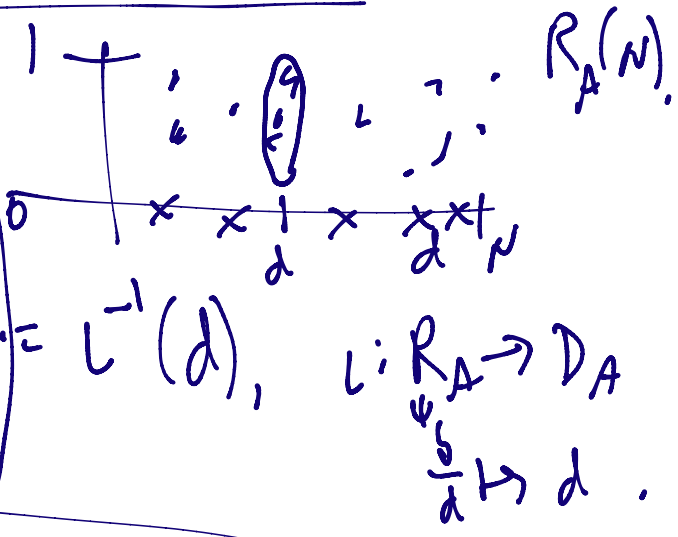 1 R_A(N).
0 d d N
:= ι^{-1}(d), ι: R_A → D_A
Ψ
b/d ↦ d .